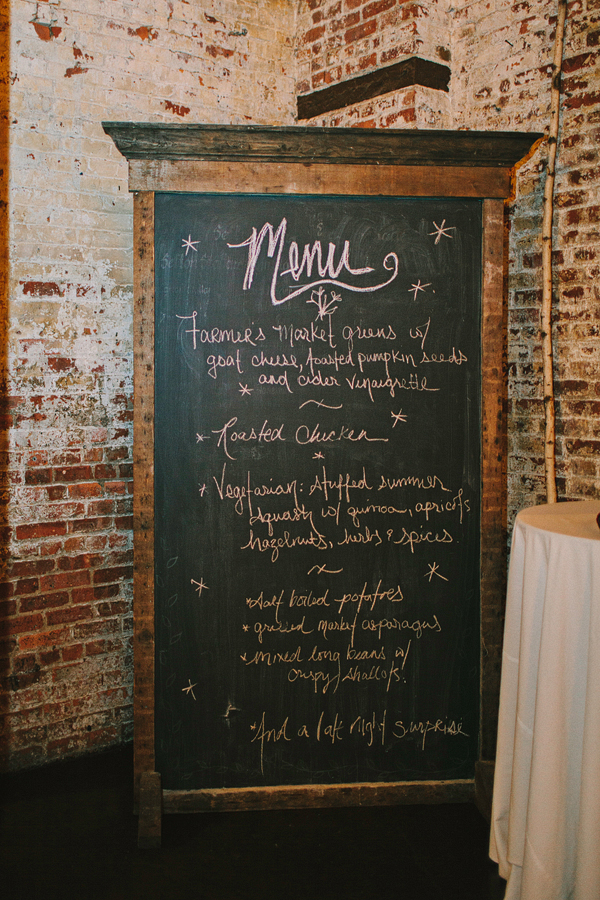 Menu
Farmer's Market greens w/
goat cheese, toasted pumpkin seeds
and cider vinaigrette
Roasted Chicken
Vegetarian: stuffed summer
squash w/ quinoa, apricots
hazelnuts, herbs & spices.
* Salt boiled potatoes
* grilled market asparagus
* mixed long beans w/
crispy shallots.
* And a late night surprise